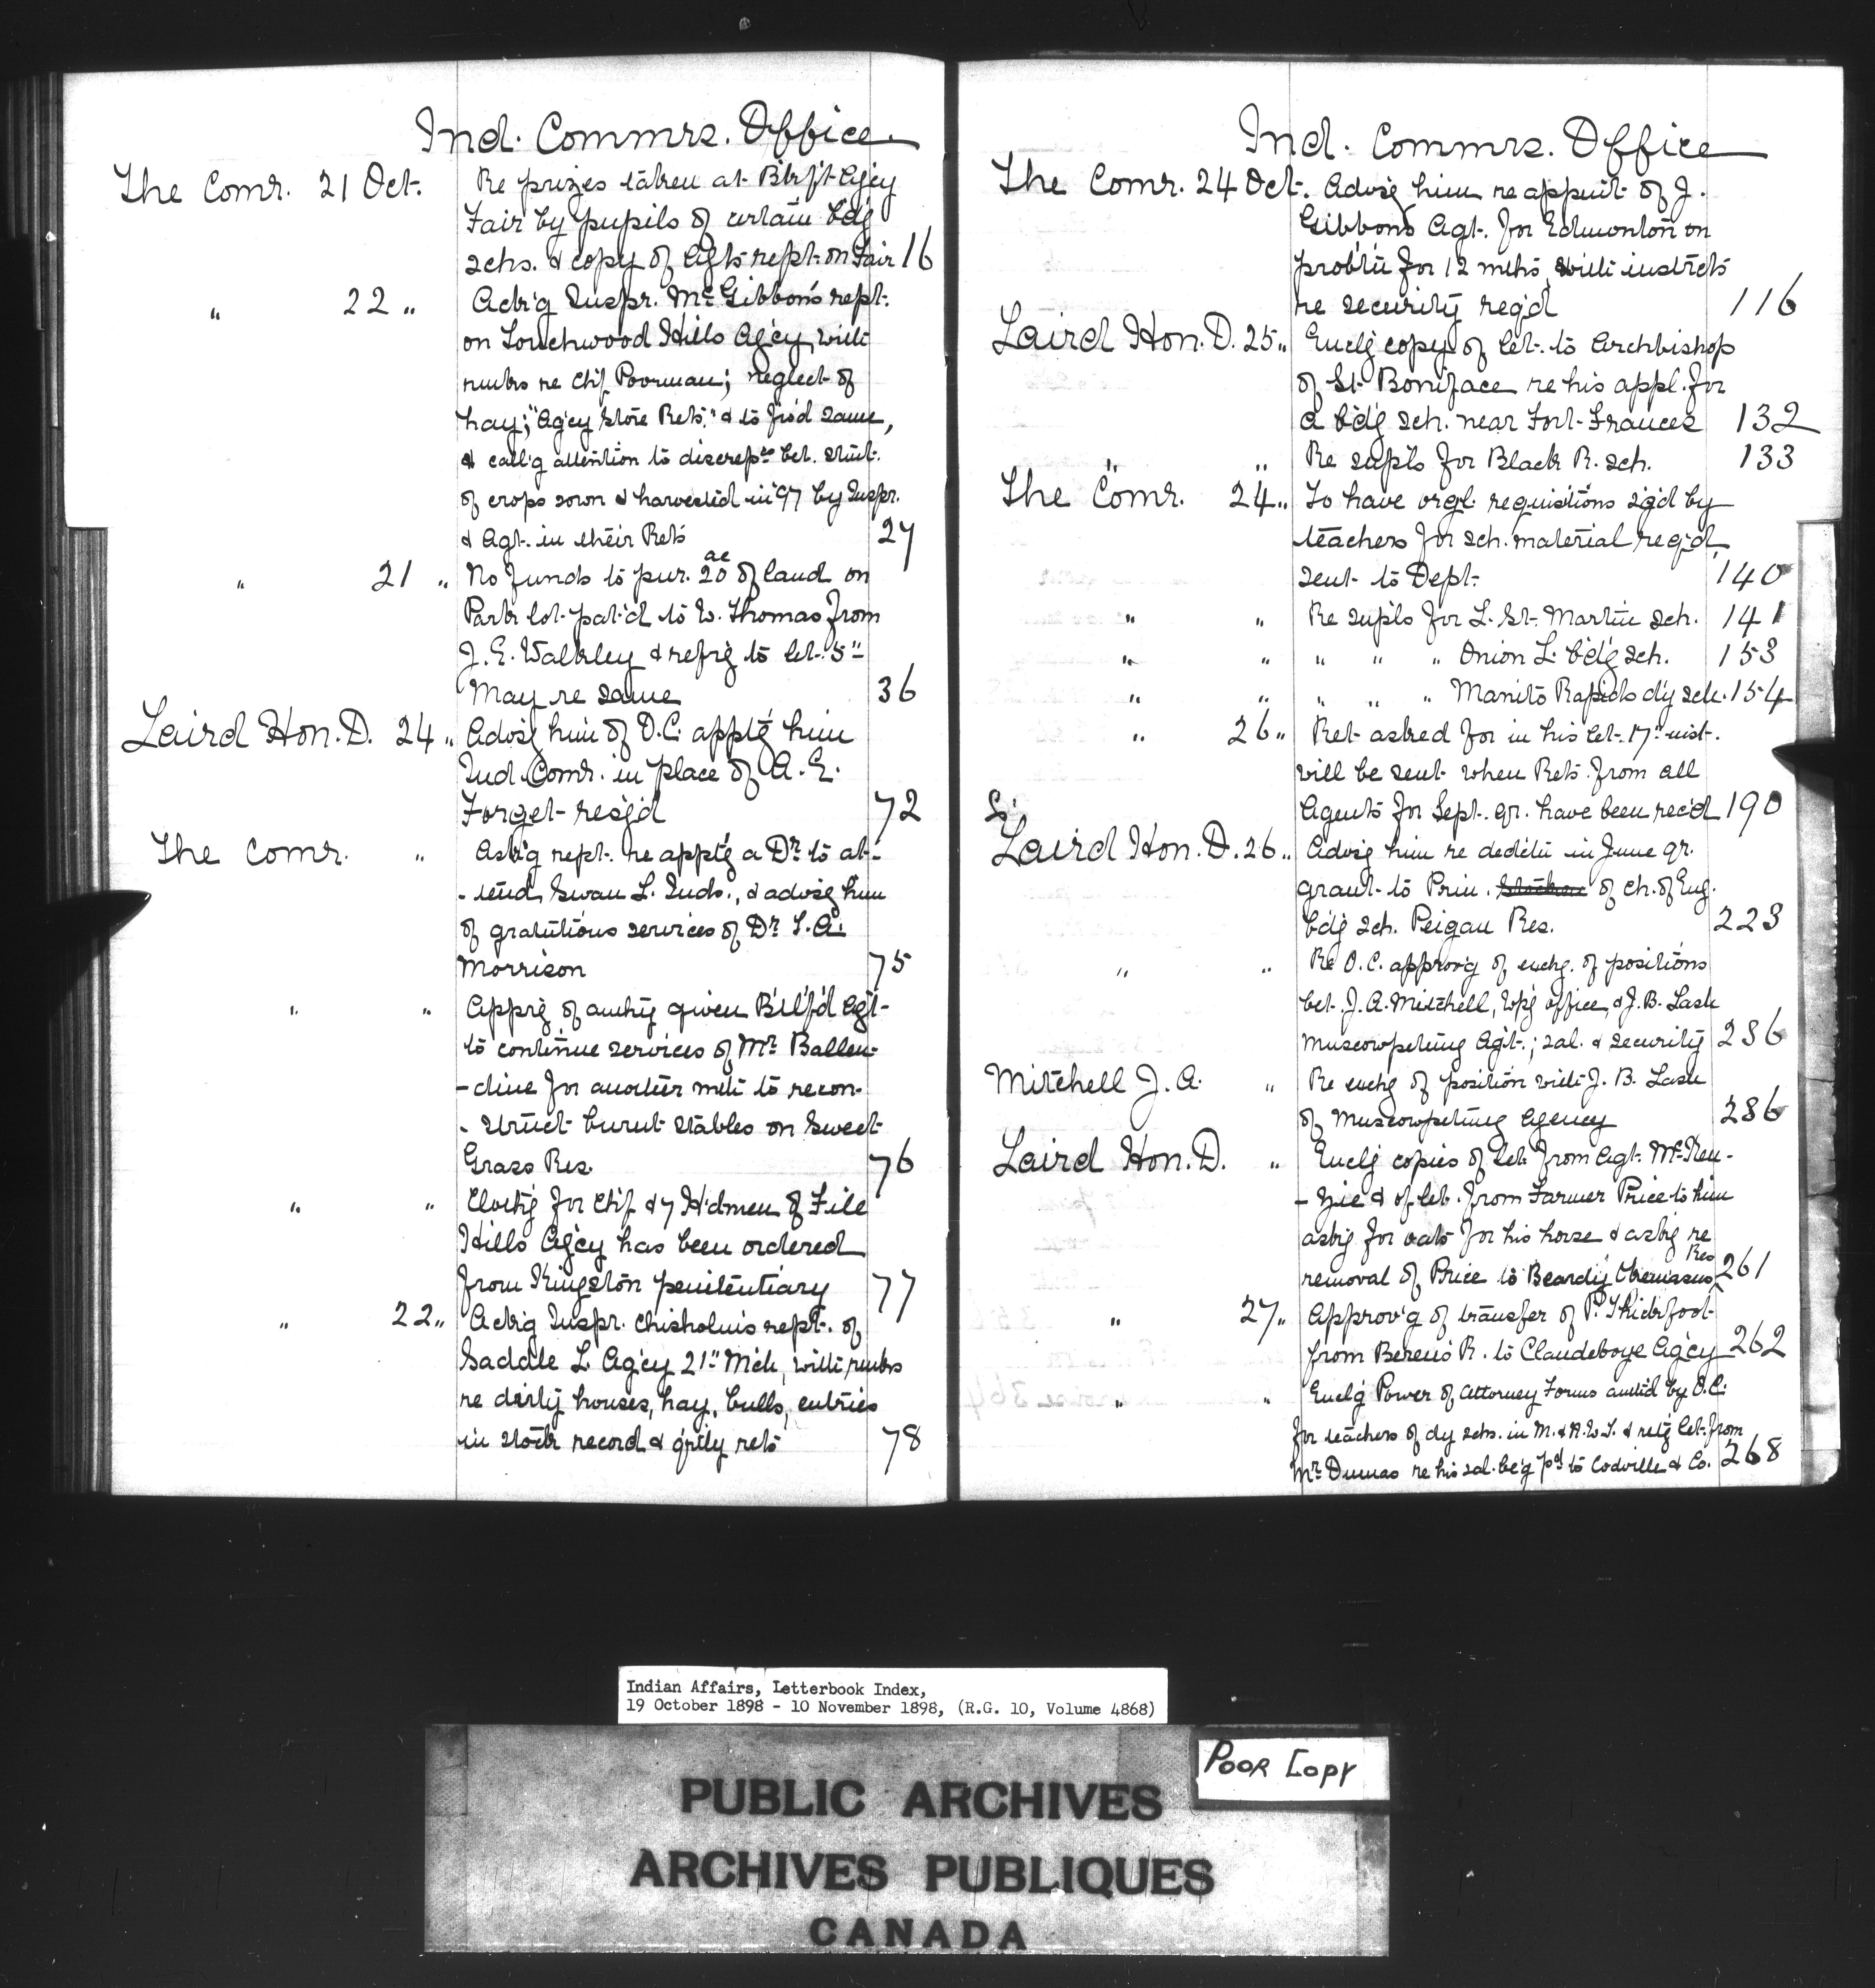 Ind. Commrs. Office
The Comr. 21 Oct. Re prizes taken at Blkft Agcy
Fair by pupils of certain bdg
schs. & copy of Agts rept. on Fair 16
" 22 " Ackg Inspr. McGibbon's rept.
on Touchwood Hills Agcy, with
rmks re Chf Poorman; neglect of
hay; "Agcy Store Rets." & to fwd same,
& callg attention to discreps bet. stmt.
of crops sown & harvested in '97 by Inspr.
& Agt. in their Rets 27
" 21 " No funds to pur. 20 ac of land on
Park lot pat'd to W. Thomas from
J. E. Walkley & refrg to let. 5"
May re same 36
Laird Hon. D. 24 " Advsg him of O.C. apptg him
Ind. Comr. in place of A. E.
Forget resg'd 72
The Comr. " Askg rept. re apptg a Dr. to at-
-tend Swan L. Inds., & advsg him
of gratutious services of Dr. T. A.
Morrison 75
" " Apprg of authy given Btlf'd Agt-
to continue services of Mr. Ballen-
-dine for another mth to recon-
-struct burnt stables on Sweet
Grass Res. 76
" " Clothg for Chf & 7 Hdmen of File
Hills Agcy has been ordered
from Kingston penitentiary 77
" 22 " Ackg Inspr. Chisholm's rept. of
Saddle L. Agcy 21" Mch, with rmks
re dirty houses, hay, bulls, entries
in stock record & qrtly rets 78
Ind. Commrs. Office
The Comr. 24 Oct. Advsg him re appmt of J.
Gibbons Agt. for Edmonton on
prob'tn for 12 mths, with instrcts
re security reqd 116
Laird Hon. D. 25 " Enclg copy of let. to Archbishop
of St. Boniface re his appl. for
a bdg sch. near Fort Frances 132
" " Re supls for Black R. sch. 133
The Comr. 24 " To have orgl. requisitions sigd by
teachers for sch. material reqd,
sent to Dept. 140
" " Re supls for L. St. Martin sch. 141
" " " " " Onion L. bdg sch. 153
" " " " " Manito Rapids dy sch. 154
" 26 " Ret asked for in his let. 17" inst.
will be sent when Rets from all
Agents for Sept. qr. have been rec'd 190
Laird Hon. D. 26 " Advsg him re dedctn in June qr.
grant to Prin. of Ch. of Eng.
bdg sch. Peigan Res. 223
" " Re O.C. approvg of exchg. of positions
bet. J. A. Mitchell, Wpg office, & J. B. Lash
Muscowpetung Agt.; sal. & security 236
Mitchell J. A. " Re exchg of position with J. B. Lash
of Muscowpetung Agency 236
Laird Hon. D. " Enclg copies of let. from Agt. McKen-
-zie & of let. from Farmer Price to him
askg for oats for his horse & askg re
removal of Price to Beardy & Okemasus Res 261
" 27 " Approvg of transfer of P. Thickfoot
from Berens R. to Clandeboye Agcy 262
" " Enclg Power of Attorney Forms authd by O.C.
for teachers of dy schs. in M. & N.W.T. & retg let. from
Mr. Dumas re his sal. beg pd to Codville & Co. 268
Indian Affairs, Letterbook Index,
19 October 1898 - 10 November 1898, (R.G. 10, Volume 4868)
POOR COPY
PUBLIC ARCHIVES
ARCHIVES PUBLIQUES
CANADA